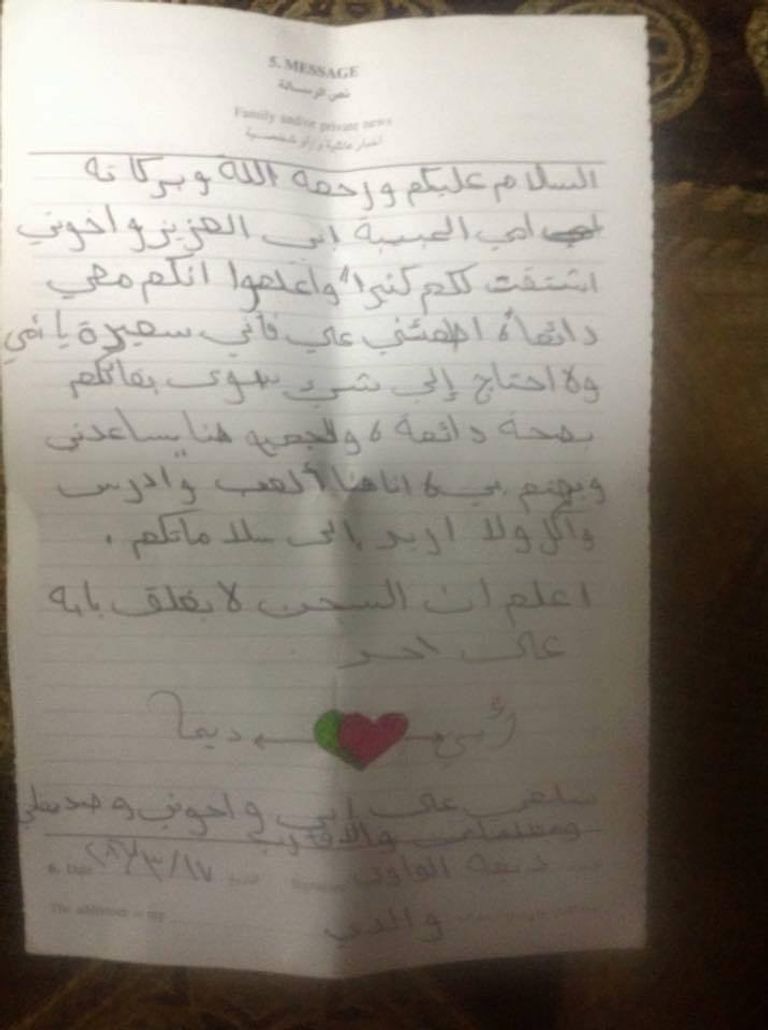 5. MESSAGE
نص الرسالة
Family and/or private news
أخبار عائلية و/أو شخصية
السلام عليكم ورحمة الله وبركاته
امي الحبيبة ابي العزيز واخوتي
اشتقت لكم كثيراً واعلموا انكم معي
دائماً، اطمئني علي فأني سعيدة يا أمي
ولا احتاج إلى شيء سوى بقائكم
بصحة دائمة، والجميع هنا يساعدني
ويهتم بي، انا هنا ألعب وادرس
وآكل ولا اريد إلى سلامتكم.
اعلم ان السجن لا يغلق بابه
على احد
أمي ديما
سلمي على ابي واخوتي و
ومعلماتي والأقارب
Date ١٧/٣/
والدي